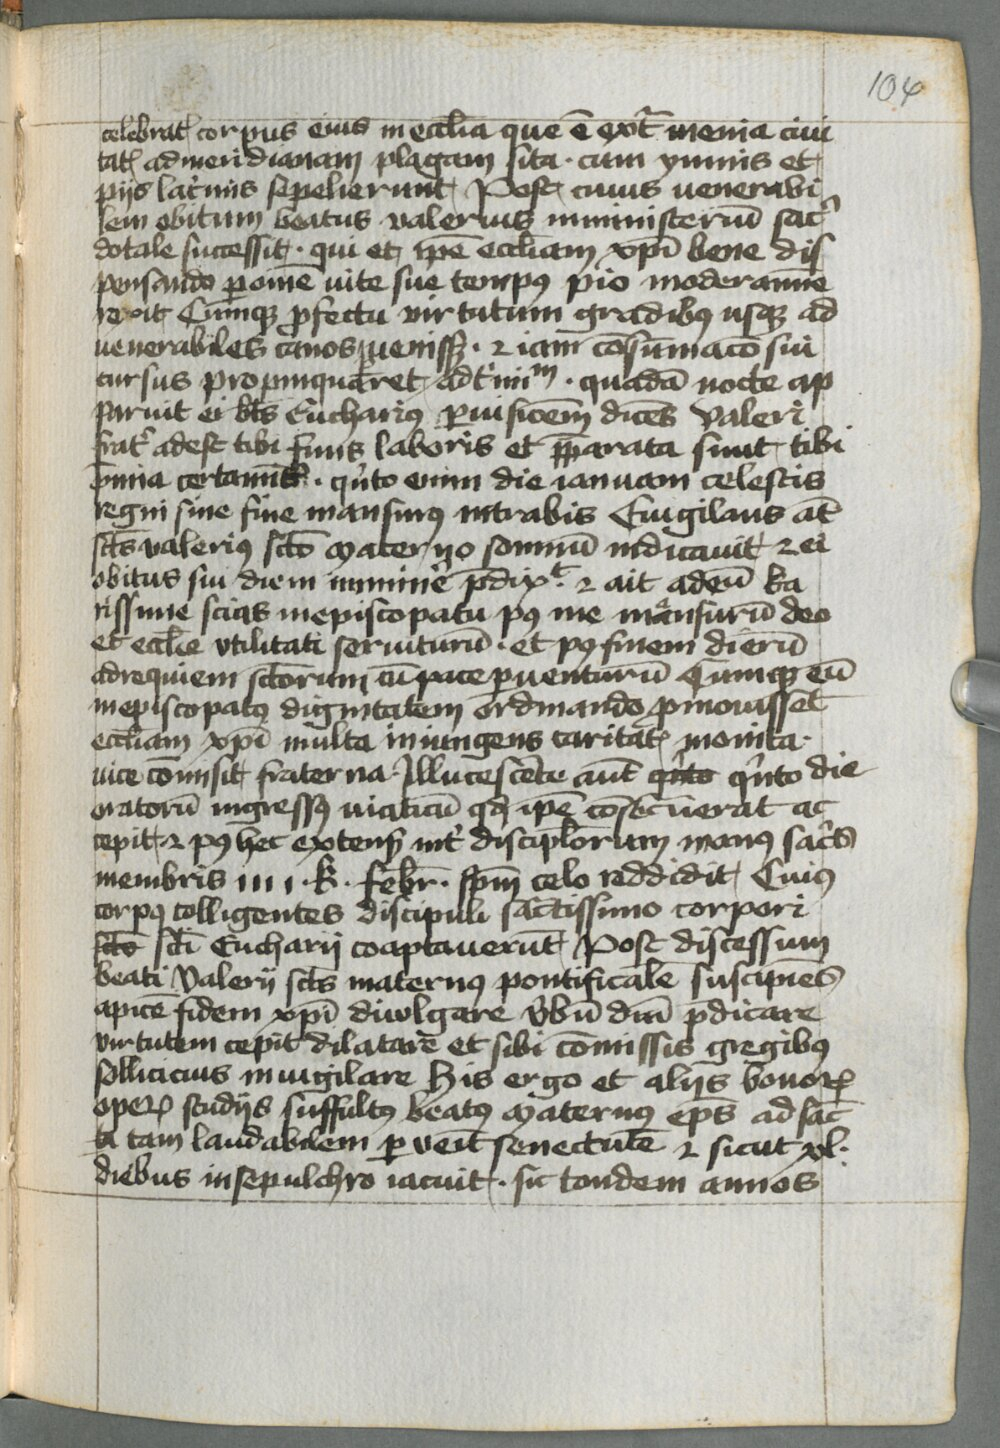 104
celebratꝭ corpus eius in eccl̄ia que ē ext̄ menia ciui
tatꝭ ad meridianam plagam sita · cum ymnis et
piis lac̓mis sepelierunt Post cuius venerabi
lem obitum beatus valerius in ministeriū sac̓
dotale successit · qui et ip̄e eccl̄iam xp̄i bene dis
pensando ꝑ om̄e uite sue tempꝰ pio moderam̄ie
rexit Cumqꝫ ꝓfectu virtutum gradibꝰ usqꝫ ad
uenerabiles canos ꝑuenissꝫ · ⁊ iam cōsūmacōi sui
cursus propinquaret ad t̓mīm · quadā nocte ap
paruit ei bt̄s Eucharius ꝑ uisiōem dicēs Valeri
frat̓ adest tibi finis laboris et p̄parata sunt tibi
om̄ia certamīs · q̓nto enim die ianuam celestis
regni sine fine mansurꝰ intrabis Euigilans at̄
sc̄tus valeriꝰ sc̄to Materno somniū indicauit ⁊ ei
obitus sui diem imminē p̄dixᵗ · ⁊ ait ad eū ka
rissime scias in episcopatu pꝰ me mansurū deo
et eccl̄ie vtilitati seruiturū · et pꝰ finem dierū
ad requiem sc̄torum cū pace ꝑuenturū Cumqꝫ eū
in episcopatꝰ dignitatem ordinando ꝓmouisset
eccl̄iam xp̄i multa iniungens caritatꝭ monita ·
uice cōmisit fraterna · Illucescēte aut̄ q̓nto q̓nto die
oratoriū ingressꝰ uiaticū qd̄ ip̄e cōsecuerat ac
cepit ⁊ pꝰ hec extensꝭ int̓ discipulorum manꝰ sac̓s
membris iiii · k · febr̄ · sp̄m celo reddidit Cuiꝰ
corpꝰ colligentes discipuli sanctissimo corpori
sc̄ts sc̄ti Eucharij coaptauerūt Post discessum
beati Valerij sc̄ts maternꝰ pontificale suscipiēs
apicē fidem xp̄i diuulgare v̓bū dn̄i p̄dicare
virtutem cepit dilatare et sibi cōmissis gregibꝰ
sollicicius inuigilare His ergo et alijs bonoꝝ
operꝭ studijs suffultꝰ beatꝰ Maternꝰ ep̄s ad sāc
ta tam laudabilem ꝑueīt senectutē ⁊ sicut xl ·
diebus in sepulchro iacuit · sic tandem annos